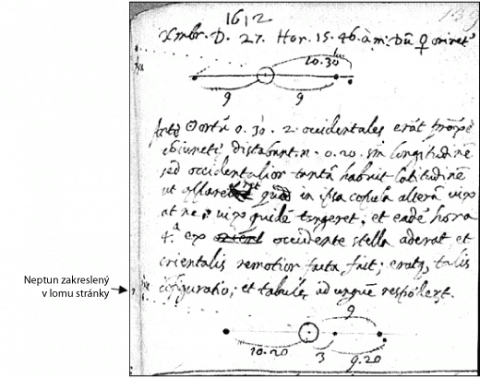 1612
139
Xmbr. D. 27. Hor. 15. 46. à m: Dũ ♀ oriret
10.30
9 9
0. 30. 2. occidentales erãt
distabant 0. 20. in longitudine
sed occidentalior tantã habuit latitudinẽ
ut in altera uix
at ne uix quidẽ tangeret; et eadẽ hora
4.ª ex occidente stella aderat et
orientalis remotior facta fuit; eratq, talis
cõfiguratio; et tabulę ad unguẽ respõderẽt.
Neptun zakreslený
v lomu stránky
9
10.20 3 9.20